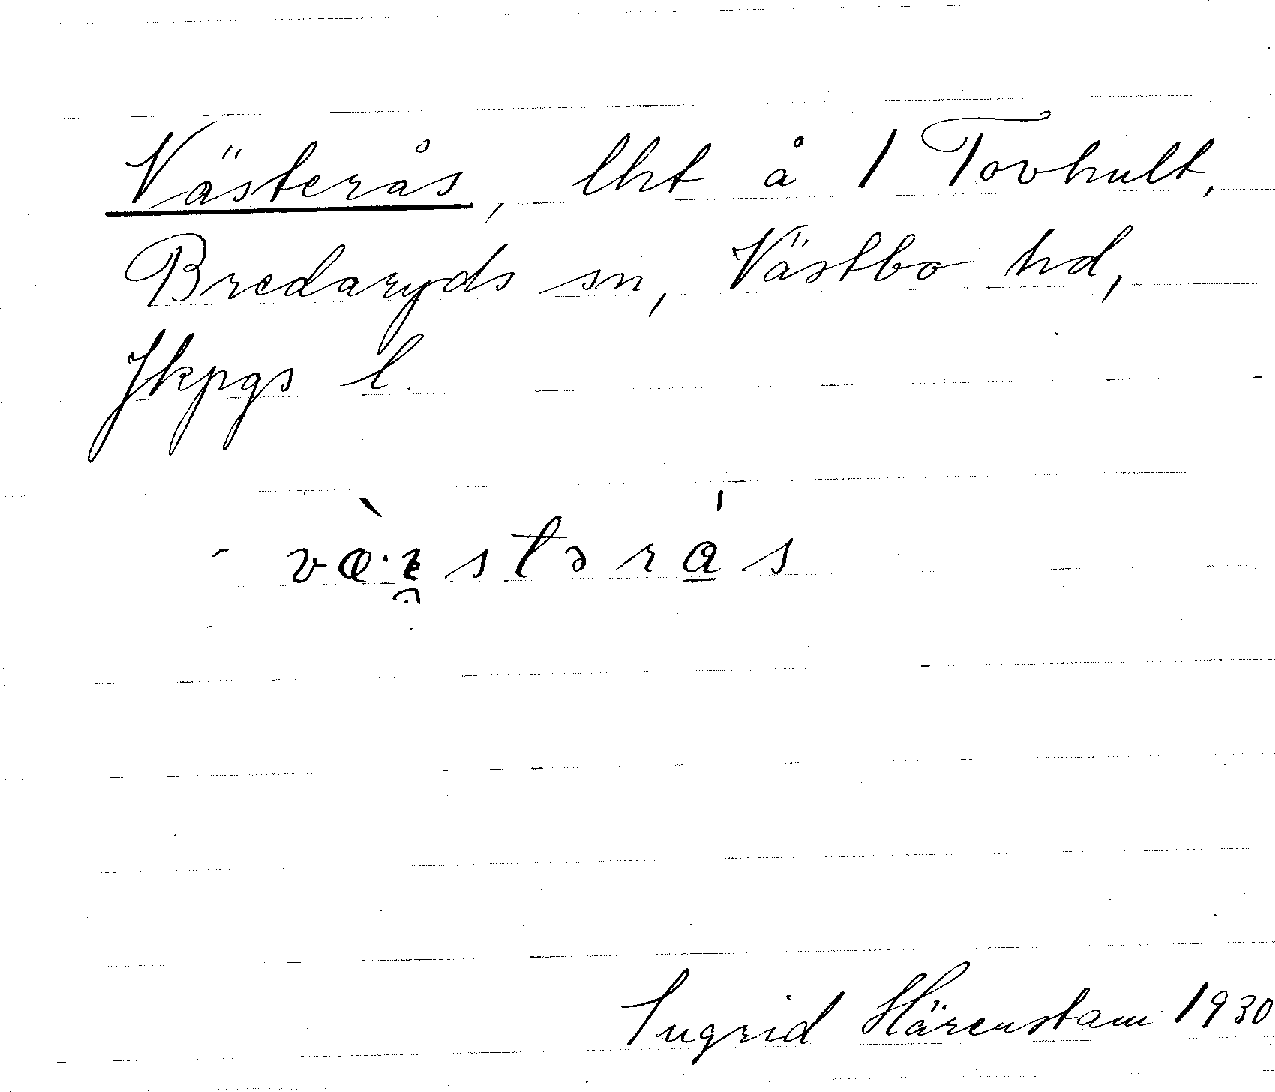 Västerås, lht å 1 Tovhult,
Bredaryds sn, Västbo hd,
Jkpgs l.
Ingrid Härenstam 1930